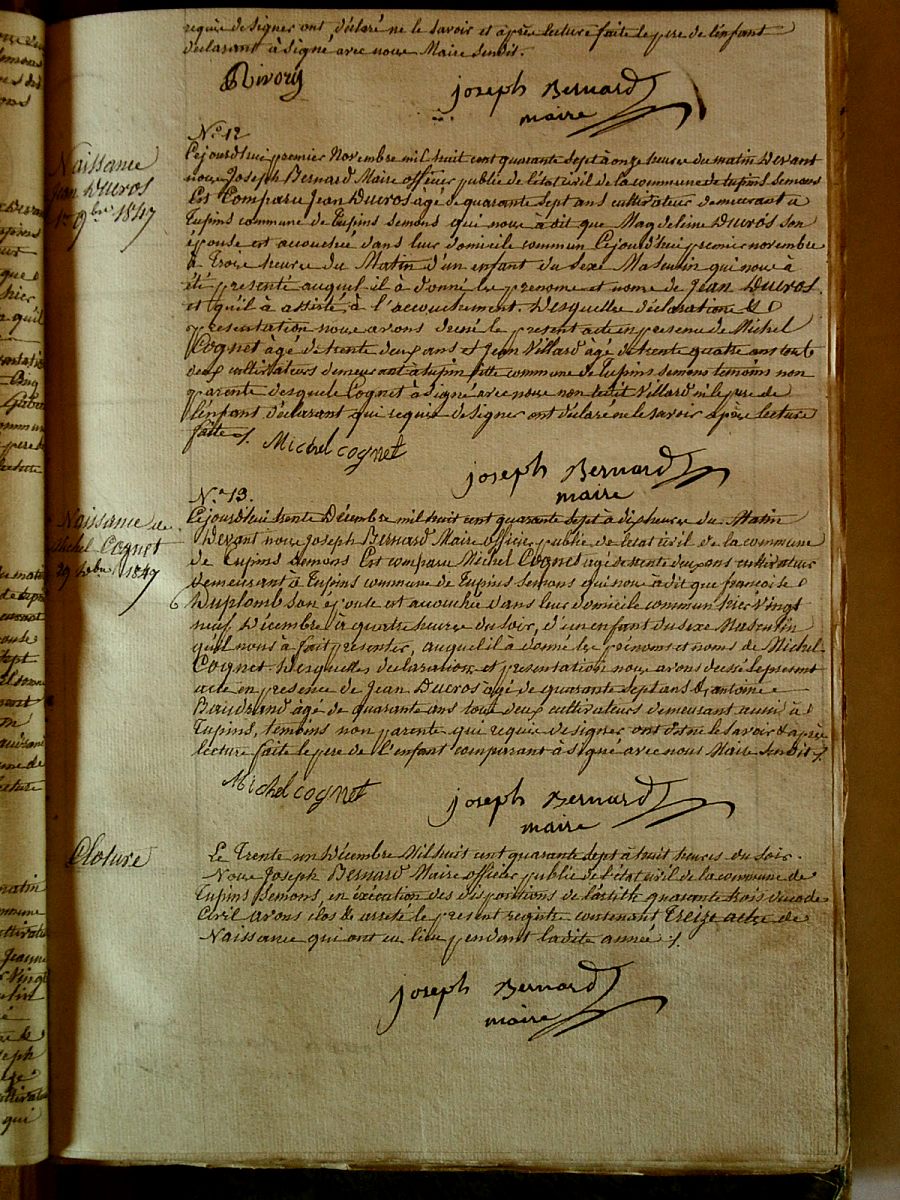 requis de signer ont déclaré ne le savoir et après lecture faite le pere de l'enfant
déclarant à signé avec nous Maire susdit.
Rivory
joseph Bernard
maire
N.o 12
Naissance
Jean Ducros
1er 9bre 1847
Cejourd'hui premier Novembre mil huit cent quarante sept à onze heure du matin Devant
nous Joseph Bernard Maire officier publie de l'état civil de la commune de tupins semons
Est Comparu Jean Ducros âgé de quarante sept ans cultivateur demeurant à
Tupins commune de Tupins Semons qui nous à dit que Magdeleine Ducros son
épouse est accouchée dans leur domicile commun Cejourd'hui premier novembre
à Trois heures du Matin d'un enfant du sexe Masculin qui nous à
été présenté auquel il à donné les prenoms et noms de Jean Ducros.
et qu'il à assisté à l'accouchement. Desquelles déclaration &
présentation nous avons dressé le present acte en presence de Michel
Cognet âgé de trente deux ans et Jean Villard âgé de trente quatre ans tout
deux cultivateurs demeurant à tupin dite commune de Tupins semons temoins non
parents desquels Cognet à signé avec nous non ledit Villard ni le pere de
l'enfant déclarant qui requis de signer ont déclaré ne le savoir après lecture
faite ./.
Michel cognet
joseph Bernard
maire
N.o 13.
Naissance de
Michel Cognet
29 Xbre 1847
Cejourd'hui trente Décembre mil huit cent quarante sept à dix heures du Matin
Devant nous Joseph Bernard Maire officier publie de l'état civil de la commune
de Tupins Semons Est comparu Michel Cognet âgé de trente deux ans cultivateur
demeurant à Tupins commune de Tupins Semons qui nous à dit que françoise
Duplomb son épouse est accouchée dans leur domicile commun hier vingt
neuf Décembre à quatre heures du soir, d'un enfant du sexe Masculin
qu'il nous à fait présenter, auquel il à donné les prénoms et noms de Michel
Cognet Desquelles déclaration et presentation nous avons dressé le present
acte en presence de Jean Ducros âgé de quarante sept ans & antoine
Baudrand âgé de quarante ans tout deux cultivateurs demeurant aussi à
Tupins, temoins non parents qui requis de signer ont dit ne le savoir & après
lecture faite le pere de l'enfant comparant à signé avec nous Maire Susdit ./.
Michel cognet
joseph Bernard
maire
Cloture
Le Trente un Décembre Mil huit cent quarante sept à huit heures du soir.
Nous Joseph Bernard Maire officier publie de l'état civil de la commune de
Tupins Semons, en éxécution des dispositions de l'article quarante trois du code
Civil avons clos & arreté le present registre contenant Treize actes de
Naissance qui ont eu lieu pendant ladite année ./.
joseph Bernard
maire